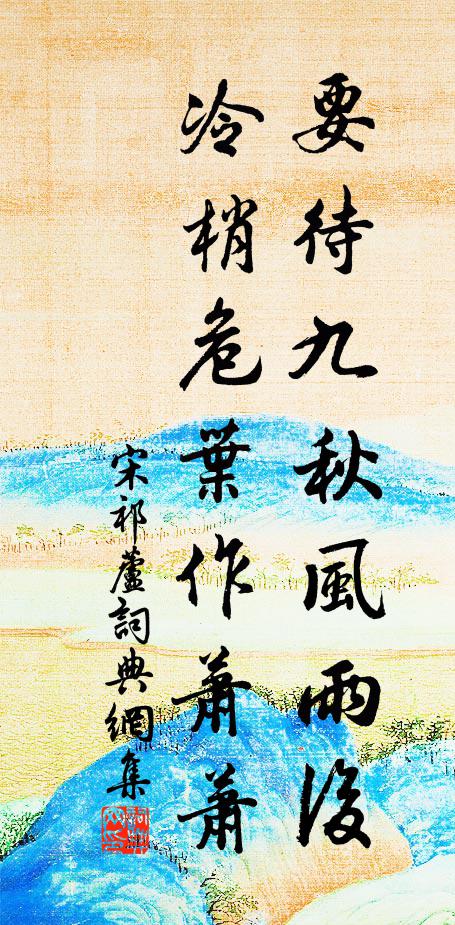 要待九秋風雨後
冷梢危葉作蕭蕭
宋祁蘆詞典網集